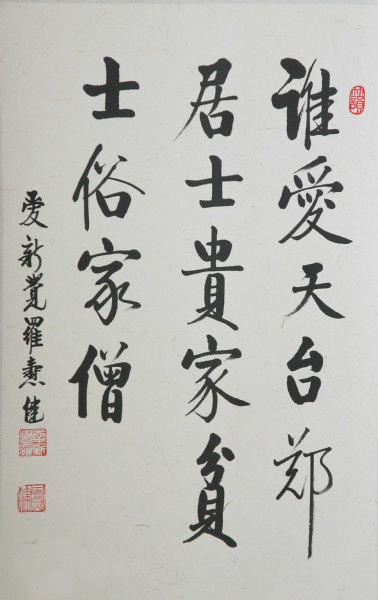 誰愛天台郑
居士貴家貧
士俗家僧
愛新覺羅佳